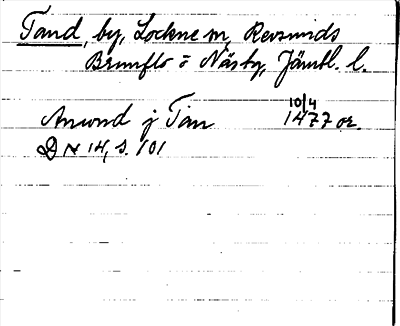 Tand, by, Lockne m, Revsunds
Brunflo o Näsby, Jämtl. l.
Anund j Tan 10/4 1477 or.
DN 14, s. 101